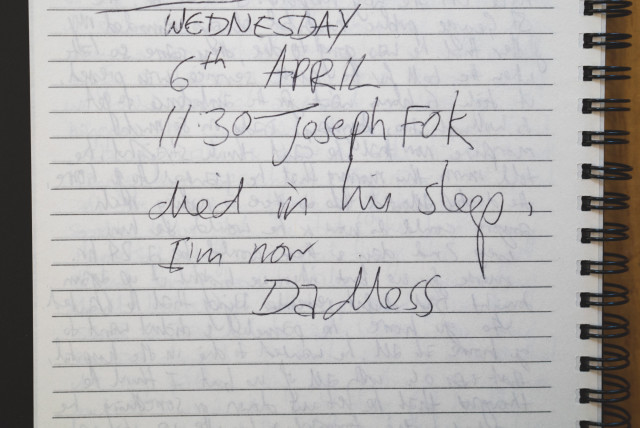 WEDNESDAY
6th APRIL
11:30 Joseph FOK
died in his sleep,
I'm now
DadLess